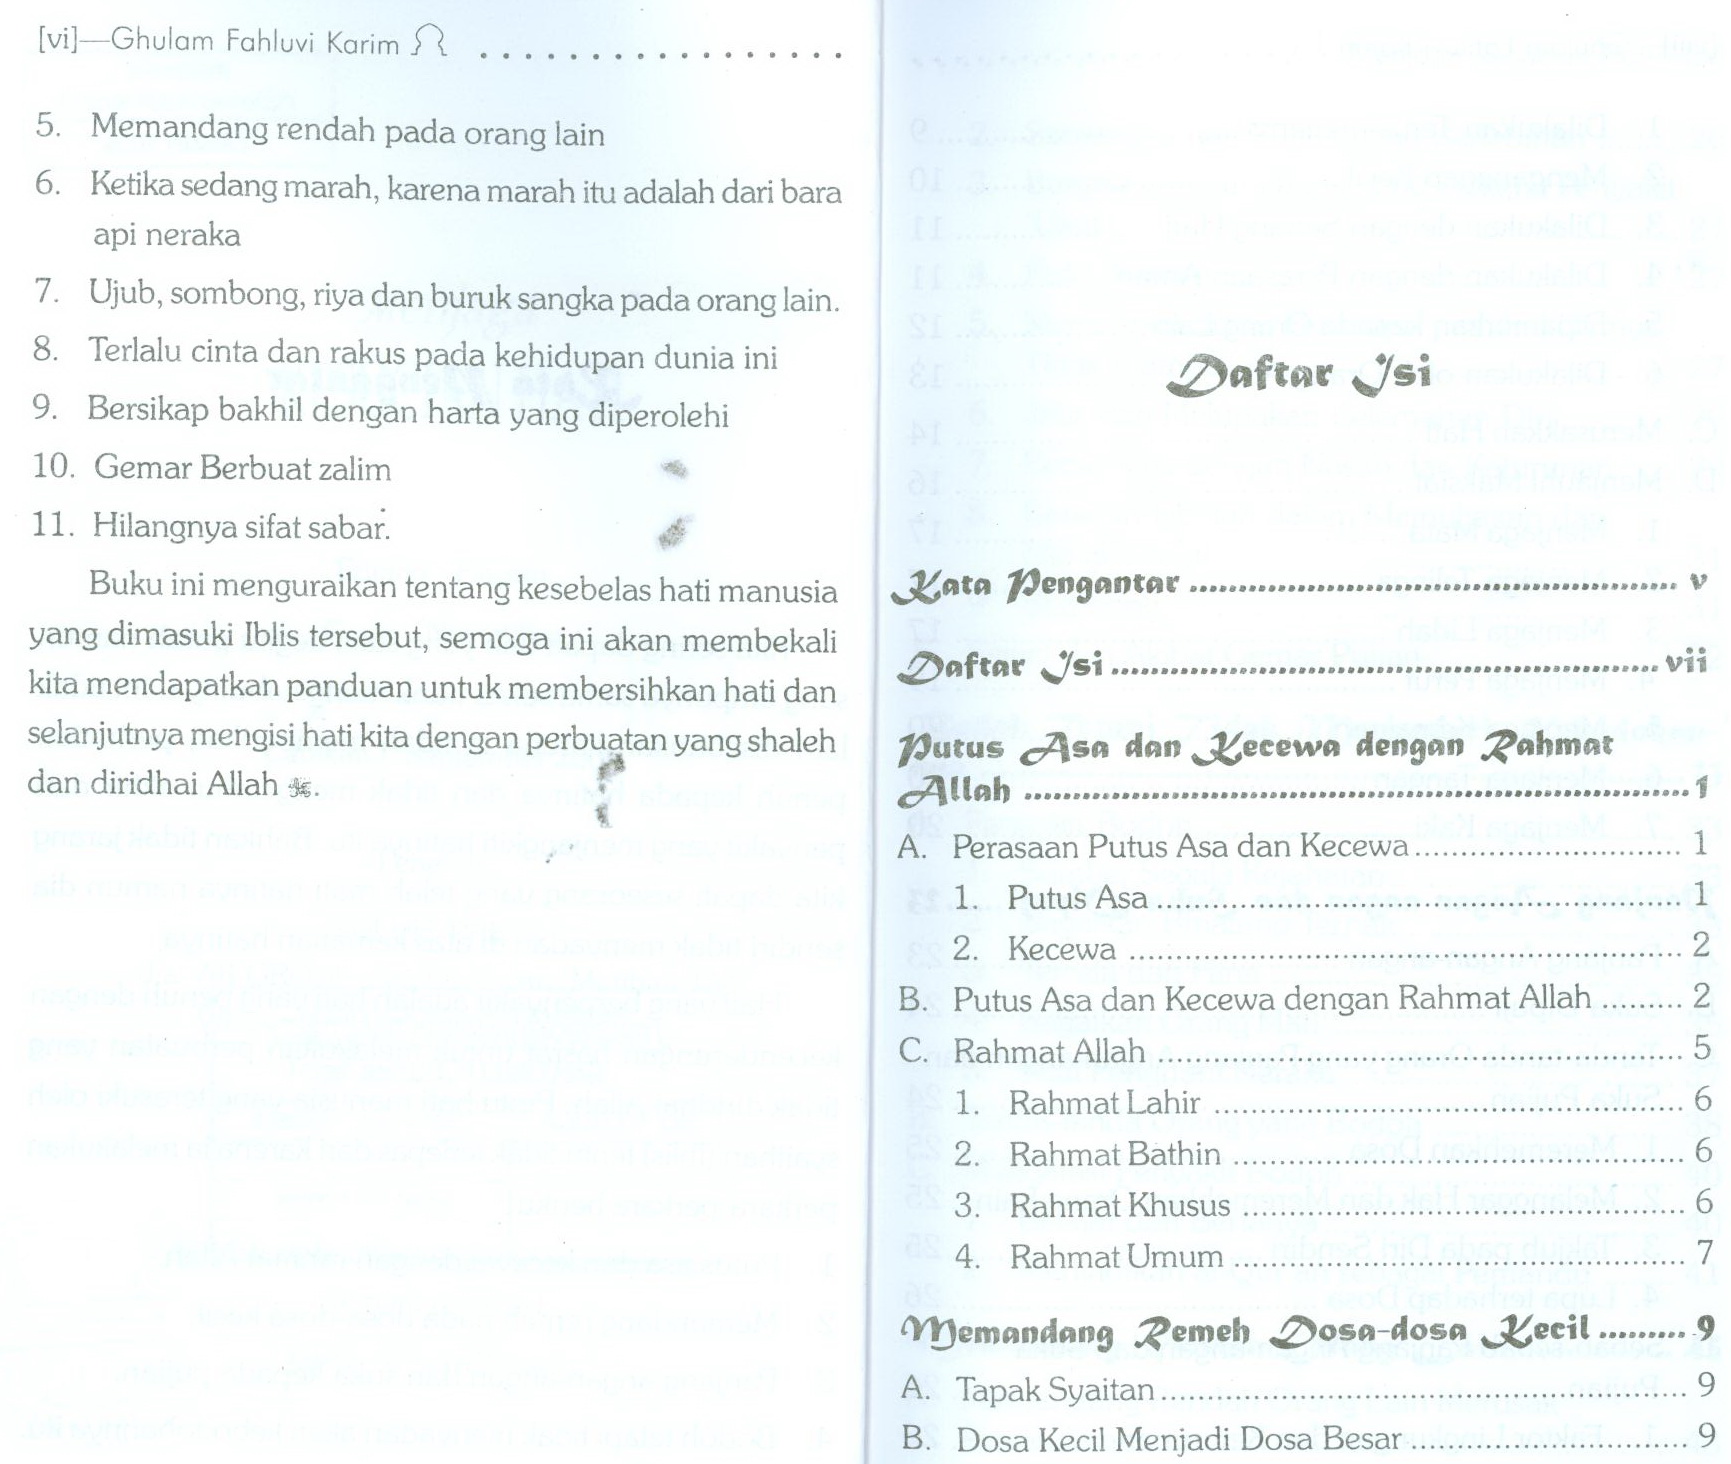 [vi]—Ghulam Fahluvi Karim
5. Memandang rendah pada orang lain
6. Ketika sedang marah, karena marah itu adalah dari bara
api neraka
7. Ujub, sombong, riya dan buruk sangka pada orang lain.
8. Terlalu cinta dan rakus pada kehidupan dunia ini
9. Bersikap bakhil dengan harta yang diperolehi
10. Gemar Berbuat zalim
11. Hilangnya sifat sabar.
Buku ini menguraikan tentang kesebelas hati manusia
yang dimasuki Iblis tersebut, semoga ini akan membekali
kita mendapatkan panduan untuk membersihkan hati dan
selanjutnya mengisi hati kita dengan perbuatan yang shaleh
dan diridhai Allah ﷻ.
Daftar Isi
Kata Pengantar .................................................. v
Daftar Isi ........................................................ vii
Putus Asa dan Kecewa dengan Rahmat
Allah .................................................................. 1
A. Perasaan Putus Asa dan Kecewa ............................ 1
1. Putus Asa ......................................................... 1
2. Kecewa ............................................................ 2
B. Putus Asa dan Kecewa dengan Rahmat Allah ......... 2
C. Rahmat Allah ......................................................... 5
1. Rahmat Lahir ................................................... 6
2. Rahmat Bathin ................................................. 6
3. Rahmat Khusus ................................................ 6
4. Rahmat Umum ................................................. 7
Memandang Remeh Dosa-dosa Kecil ......... 9
A. Tapak Syaitan ........................................................ 9
B. Dosa Kecil Menjadi Dosa Besar .............................. 9